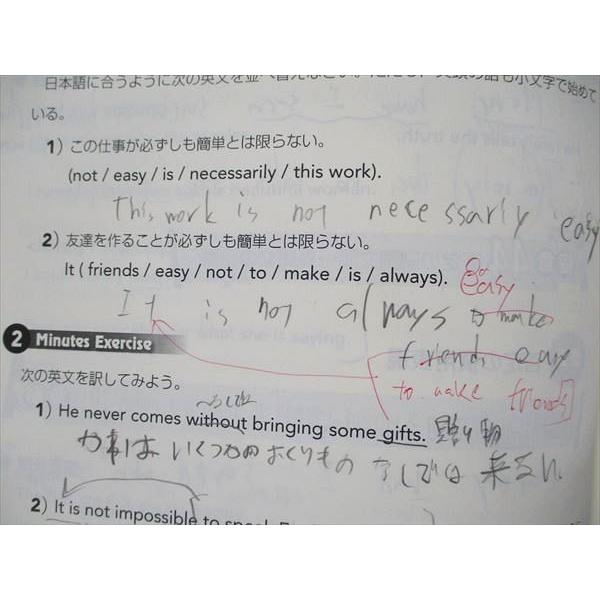 日本語に合うように次の英文を並べ替えなさい。ただし、文頭の語も小文字で始めて
いる。
1) この仕事が必ずしも簡単とは限らない。
(not / easy / is / necessarily / this work).
This work is not necessarily easy
2) 友達を作ることが必ずしも簡単とは限らない。
It ( friends / easy / not / to / make / is / always).
easy
It is not always to make
friends easy
to make friends
2 Minutes Exercise
次の英文を訳してみよう。
1) He never comes without bringing some gifts. 贈り物
かれは いくつかの おくりもの なしでは 来ない
2) It is not impossible to